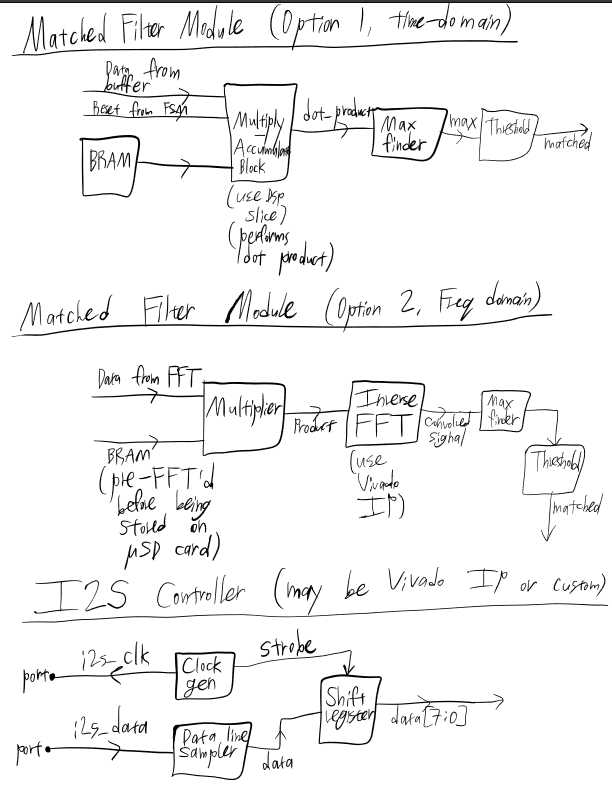 Matched Filter Module (Option 1, time-domain)
Data from
buffer
Reset from FSM
BRAM
Multiply
Accumulate
Block
dot_product
Max
finder
max
Threshold
matched
(use DSP
slice)
(performs
dot product)
Matched Filter Module (Option 2, Freq domain)
Data from FFT
BRAM
(pre-FFT'd
before being
stored on
µSD card)
Multiplier
Product
Inverse
FFT
(use
Vivado
IP)
convolved
signal
Max
finder
Threshold
matched
I2S Controller (may be Vivado IP or custom)
port
i2s_clk
Clock
gen
strobe
Shift
register
data[7:0]
port
i2s_data
Data line
sampler
data